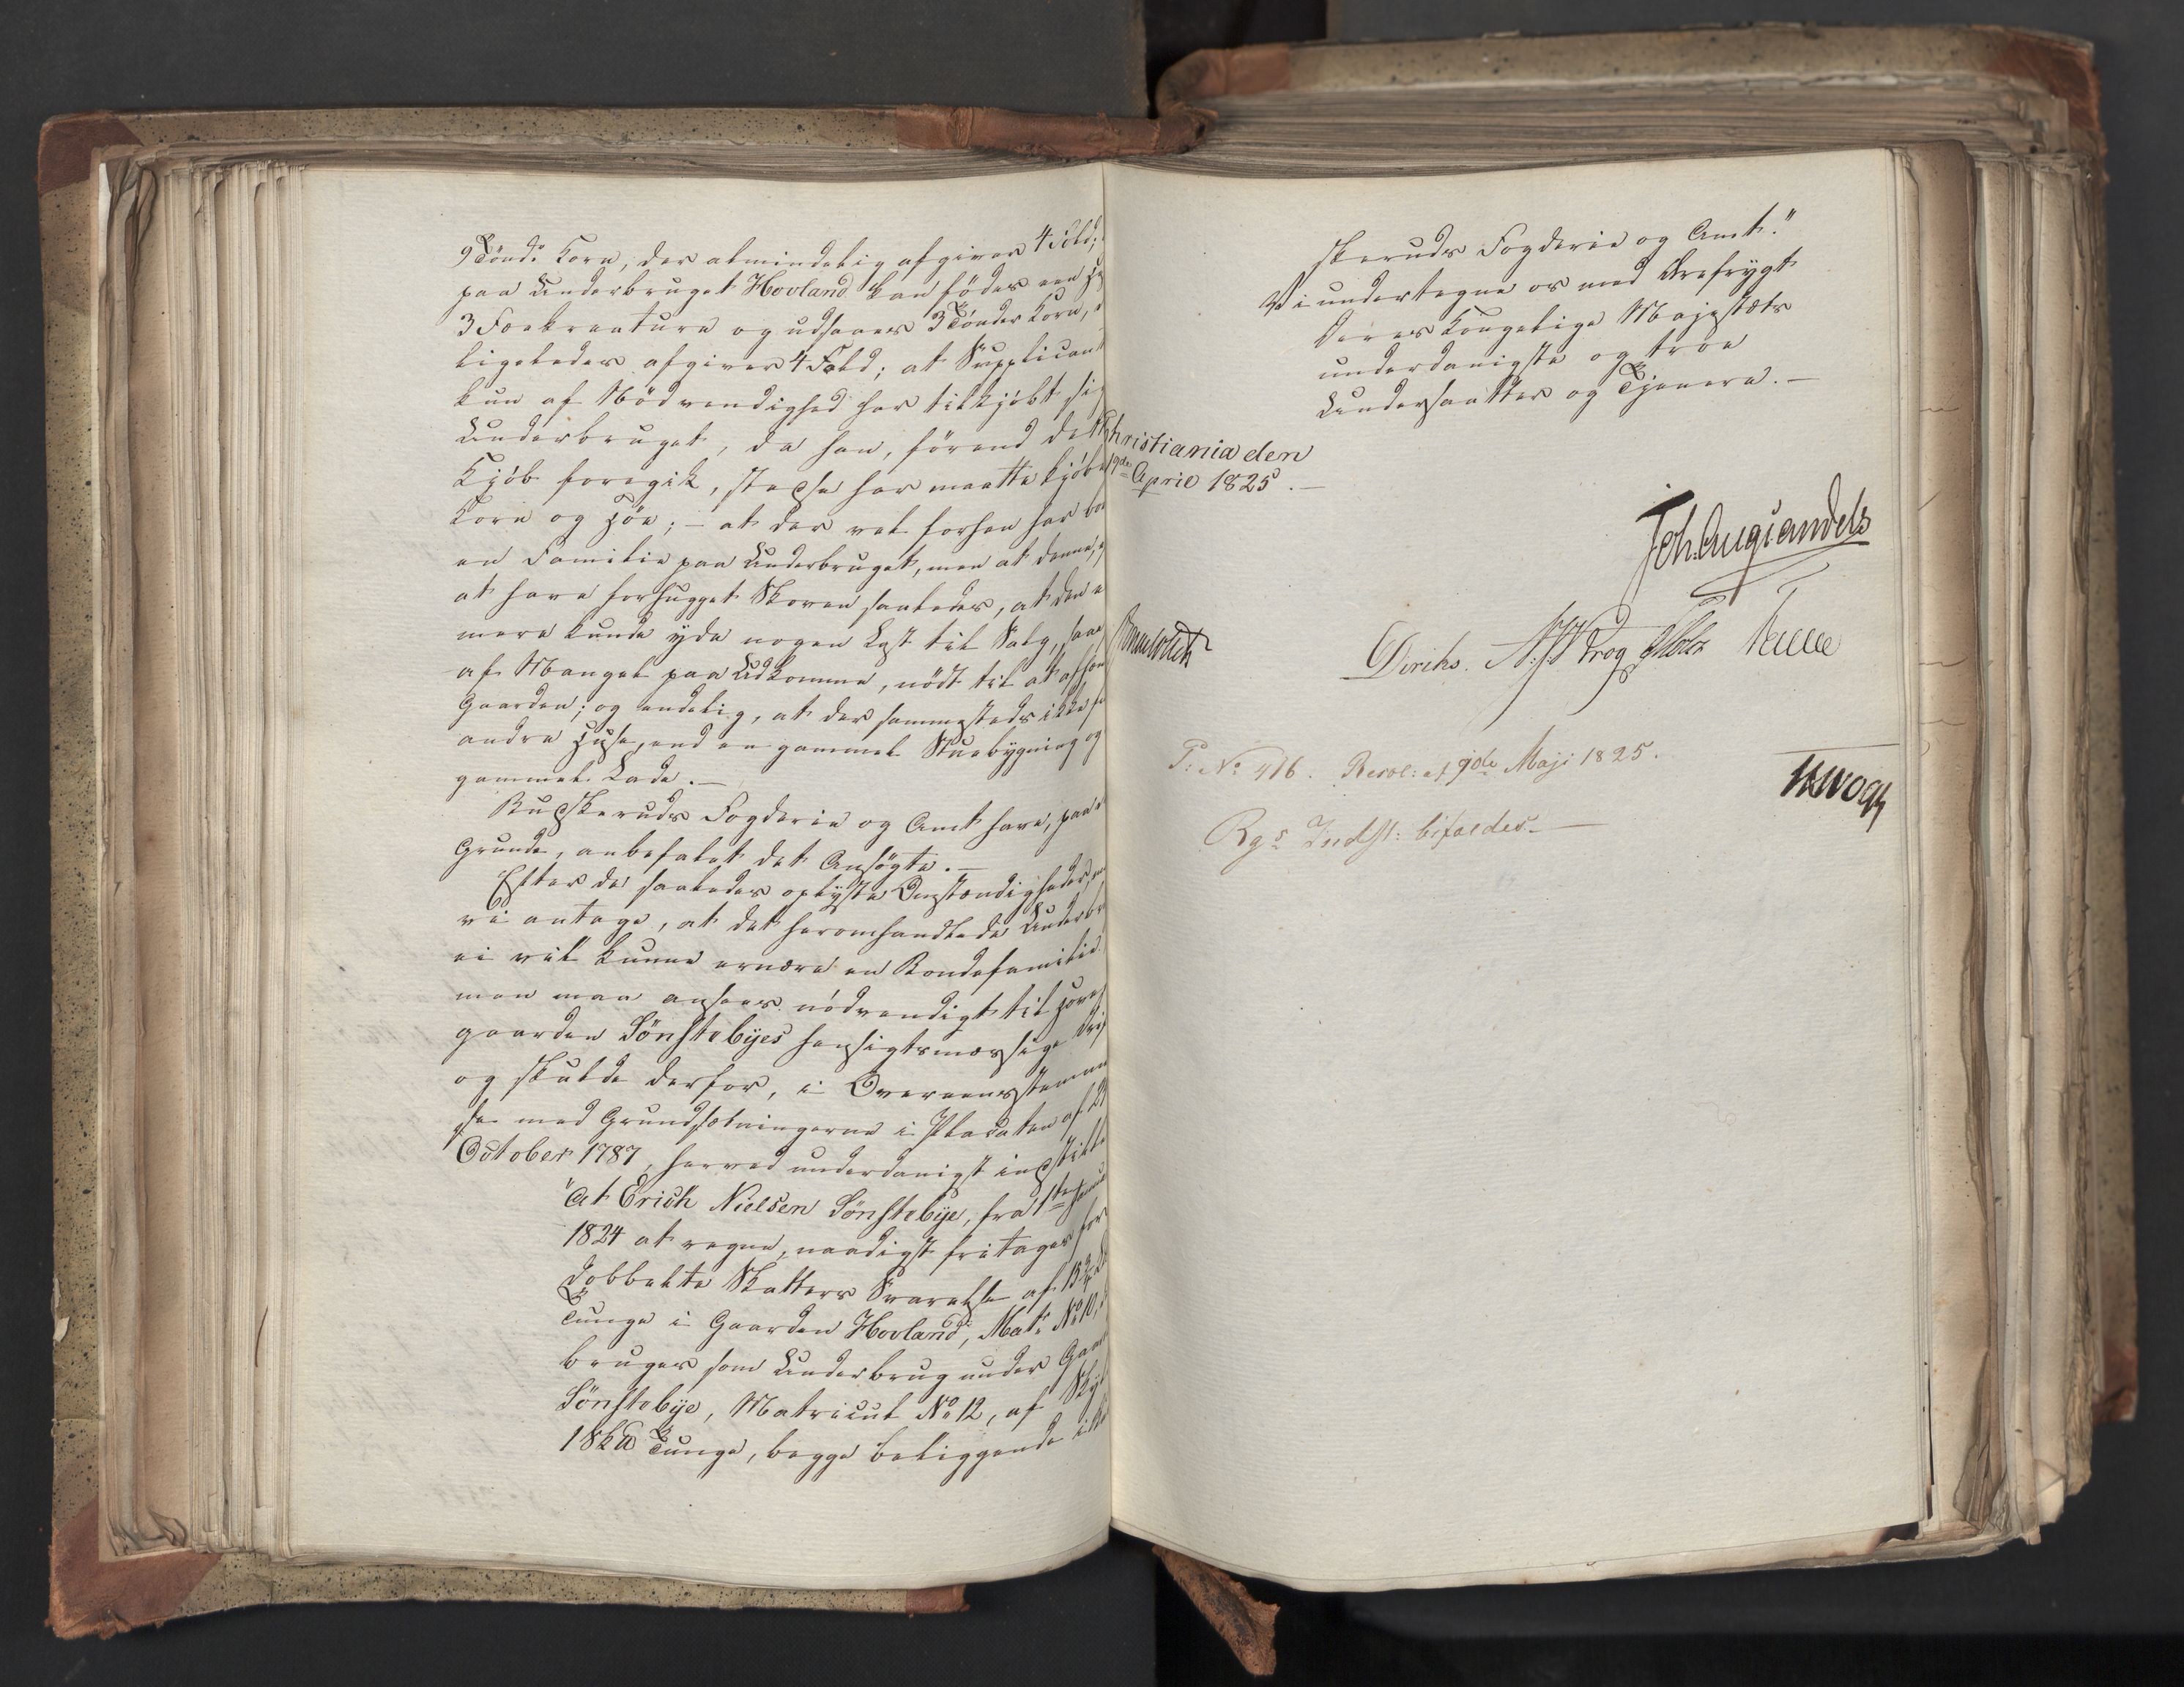 9 Tönd. Korn, der almindelig afgiver 4 Fold;
paa Underbruget Hovland kan födes een
3 Fækreature og udsaaes 3 Tönder Korn,
ligeledes afgiver 4 Fold; at Supplicant
kun af Nödvendighed har tilkjöbt sig
Underbruget, da han, förend dette
Kjöb foregik, stedse har maatte kjöbe
Korn og Höe; – at der vel forhen har bo
en Familie paa Underbruget, men at denne,
at have forhugget Skoven saaledes, at den
mere kunde yde nogen Last til Salg, saae
af Mangel paa Udkomme, nödt til at afhæn
Gaarden; og endelig, at der sammesteds ikke
andre Huse, end en gammel Stuebygning og
gammel Lade. –
Buskeruds Fogderie og Amt have, paa
Grunde, anbefalet det Ansögte. –
Efter de saaledes oplyste Omstændigheder,
vi antage, at det heromhandlede Underbr
ei vil kunne ernære en Bondefamilie.
men maa ansees nödvendigt til Hoved
gaarden Sönstebyes hensigtsmæssige Drif
og skulde derfor, i Overeensstemmel
se med Grundsætningerne i Placaten af 29
October 1787, herved underdanigst indstille
"At Erich Nielsen Sönstebye, fra 1ste Janua
1824 at regne, naadigst fritages for
dobbelte Skatters Svarelse af 13¾
Tunge i Gaarden Hovland, Mat: No 10,
bruges som Underbrug under Gaar
Sönstebye, Matricul No 12, af Skyld
1 Skd Tunge, begge beliggende i
skeruds Fogderie og Amt."
Vi undertegne os med Ærefrygt
Deres Kongelige Majestæts
underdanigste og troe
Undersaatter og Tjenere. –
Christiania den
9de April 1825. –
Joh. Aug. Sandels
Sommerhielm
Diriks. N. J. W. Krog Holst Fasting
P: No 416. Resol: af 9de Maji 1825.
HHVogt
Rgs Indst: bifaldes. –